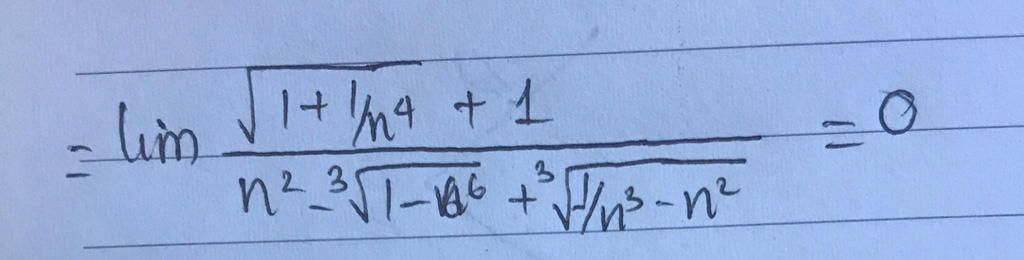 = lim (√(1 + 1/n⁴) + 1) / (n² - ³√(1 - n⁶) + ³√(1/n³ - n²)) = 0